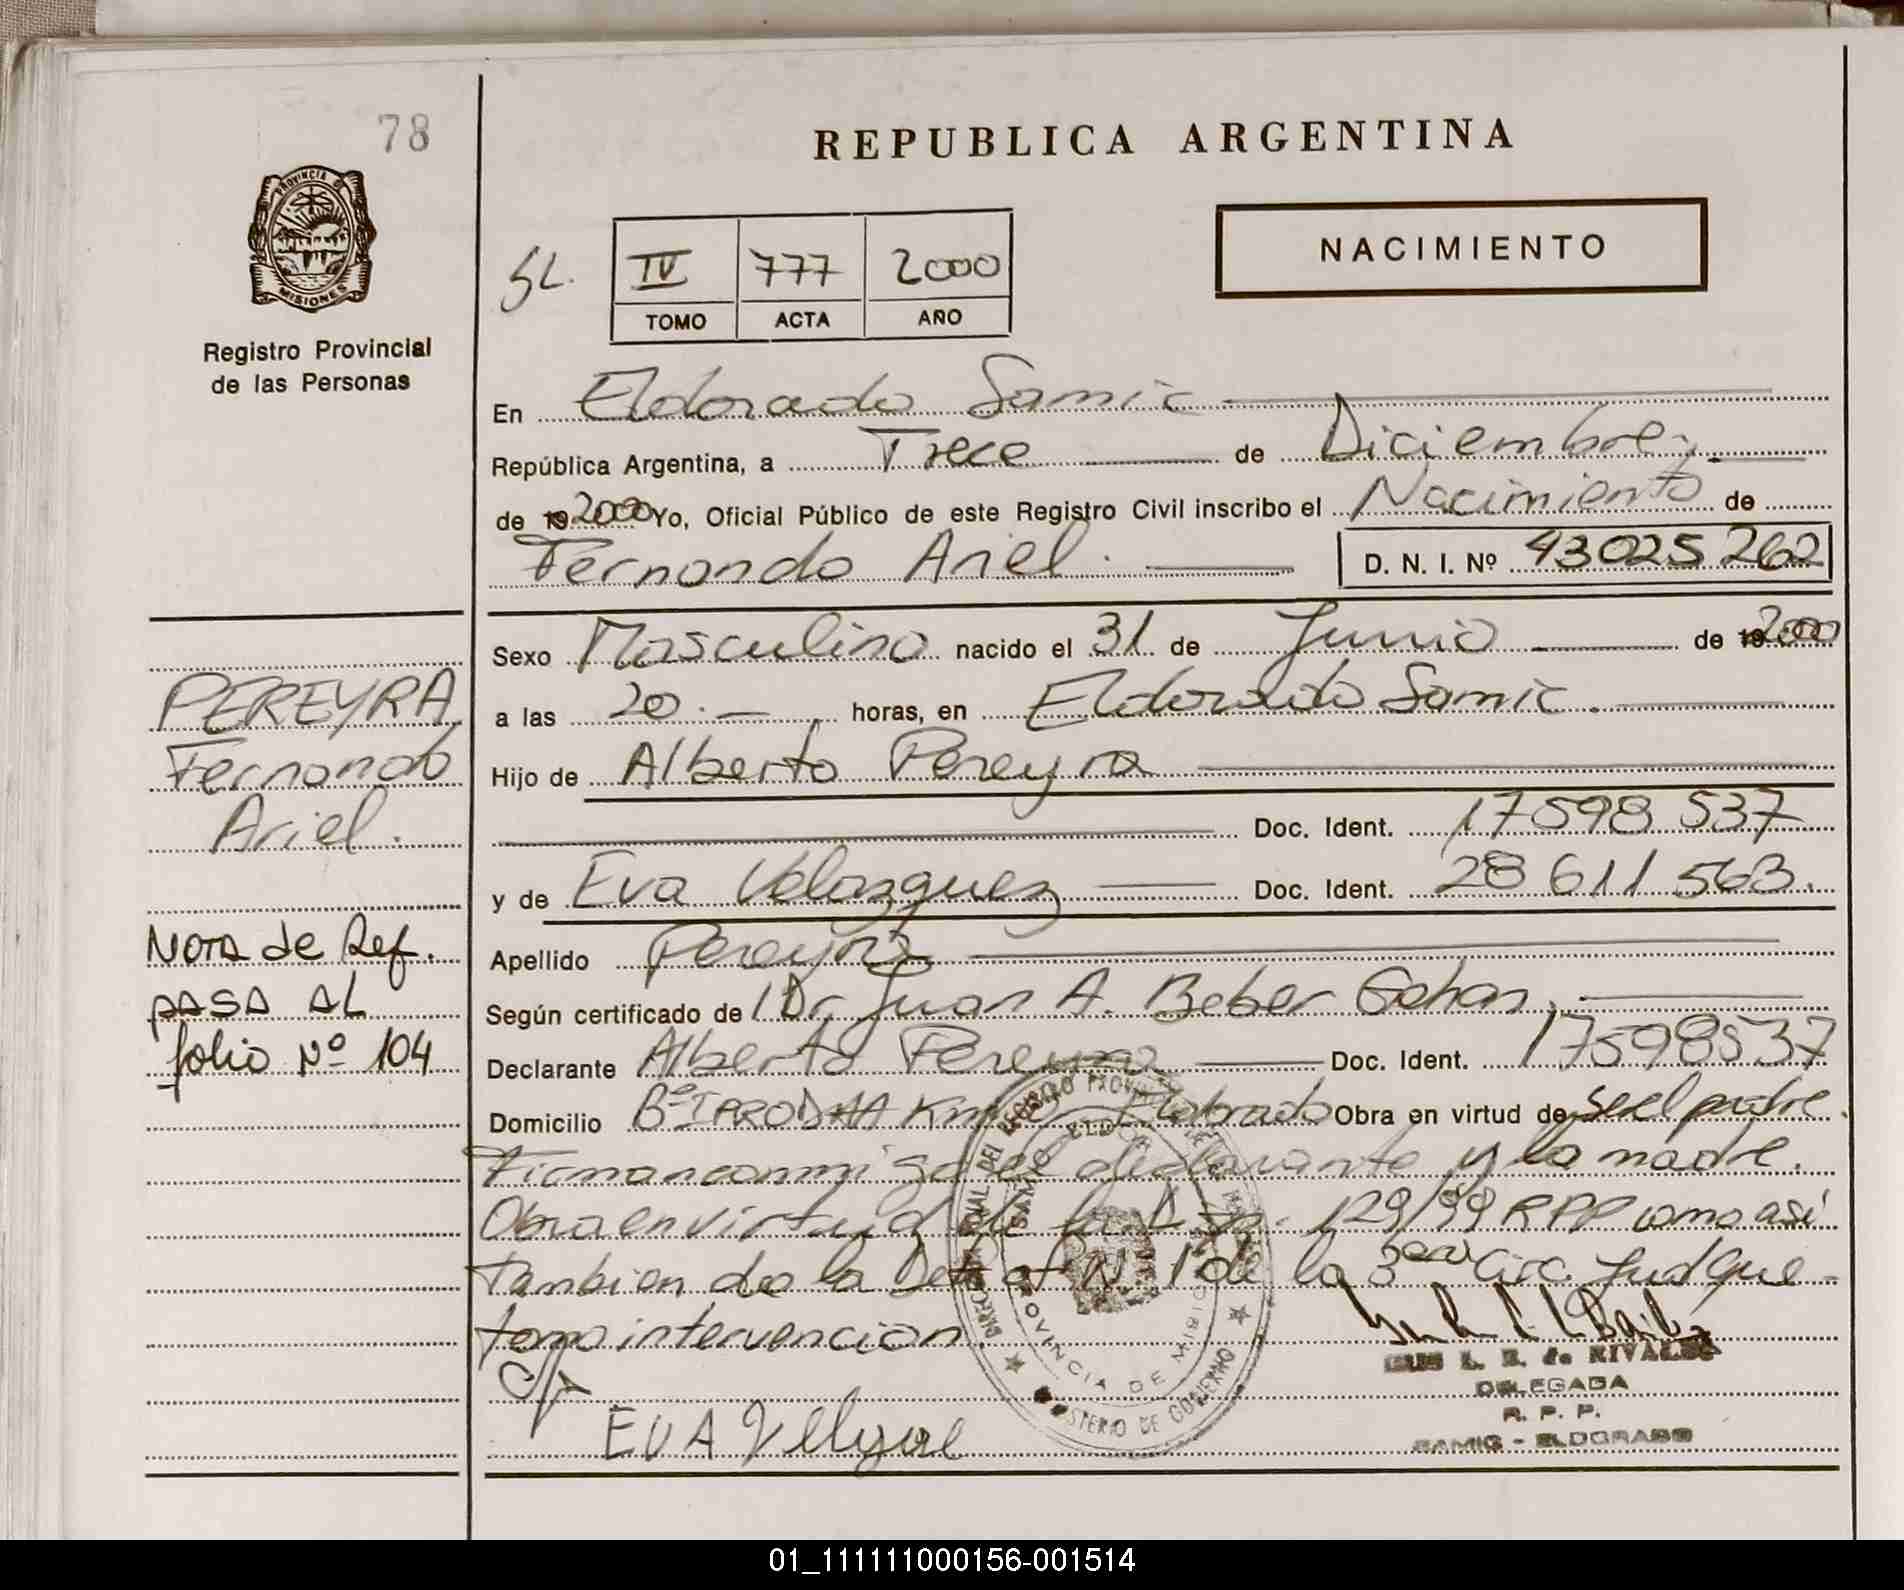 78
REPUBLICA ARGENTINA
PROVINCIA D
MISIONES
Registro Provincial
de las Personas
NACIMIENTO
SL.
IV 777 2000
TOMO ACTA AÑO
En Eldorado Samic
República Argentina, a Trece de Diciembre
de 19 2000 Yo, Oficial Público de este Registro Civil inscribo el Nacimiento de
Fernando Ariel. D. N. I. Nº 43025262
Sexo Masculino nacido el 31 de Junio de 19 2000
a las 20.- horas, en Eldorado Samic.
Hijo de Alberto Pereyra
Doc. Ident. 17598537
y de Eva Velazquez Doc. Ident. 28611563.
Apellido Pereyra
Según certificado de Dr Juan A. Beber Gohan.
Declarante Alberto Pereyra Doc. Ident. 17598537
Domicilio Bº Km Eldorado Obra en virtud de Ser el padre.
Firman conmigo el declarante y la madre.
Obra en virtud de la 129/99 RPP como asi
tambien de la Def of Nº 1 de la 3era Circ. Jud que
toma intervencion.
EVA
PEREYRA
Fernando
Ariel.
NOTA de Ref.
PASA AL
folio Nº 104
L. B. de RIVALDS
DELEGADA
R. P. P.
SAMIC - ELDORADO
PROVINCIA DE MISIONES
MINISTERIO DE GOBIERNO
01_111111000156-001514